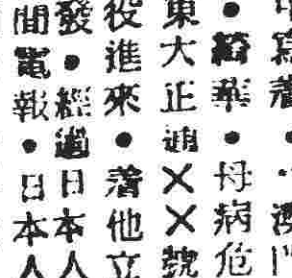 寫着
•綺華•母病危
東大正通××號
役進來•着他立
發•經過日本人
間電報•日本人